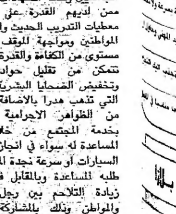 ممن لديهم القدرة على
معطيات التدريب الحديث و
المواطنين ومواجهة الموقف
مستوى من الكفاءة والقدرة
نتمكن من تقليل حواد
وتخفيض الضحايا البشرية
التي تذهب هدرا بالاضافة
من الظواهر الاجرامية
بخدمة المجتمع من خلا
المساعدة له سواء في انجاز
السيارات أو سرعة نجدة الم
طلبه للمساعدة وبالمقابل ف
زيادة التلاحم بين رجل
والمواطن وذلك بالمشاركة